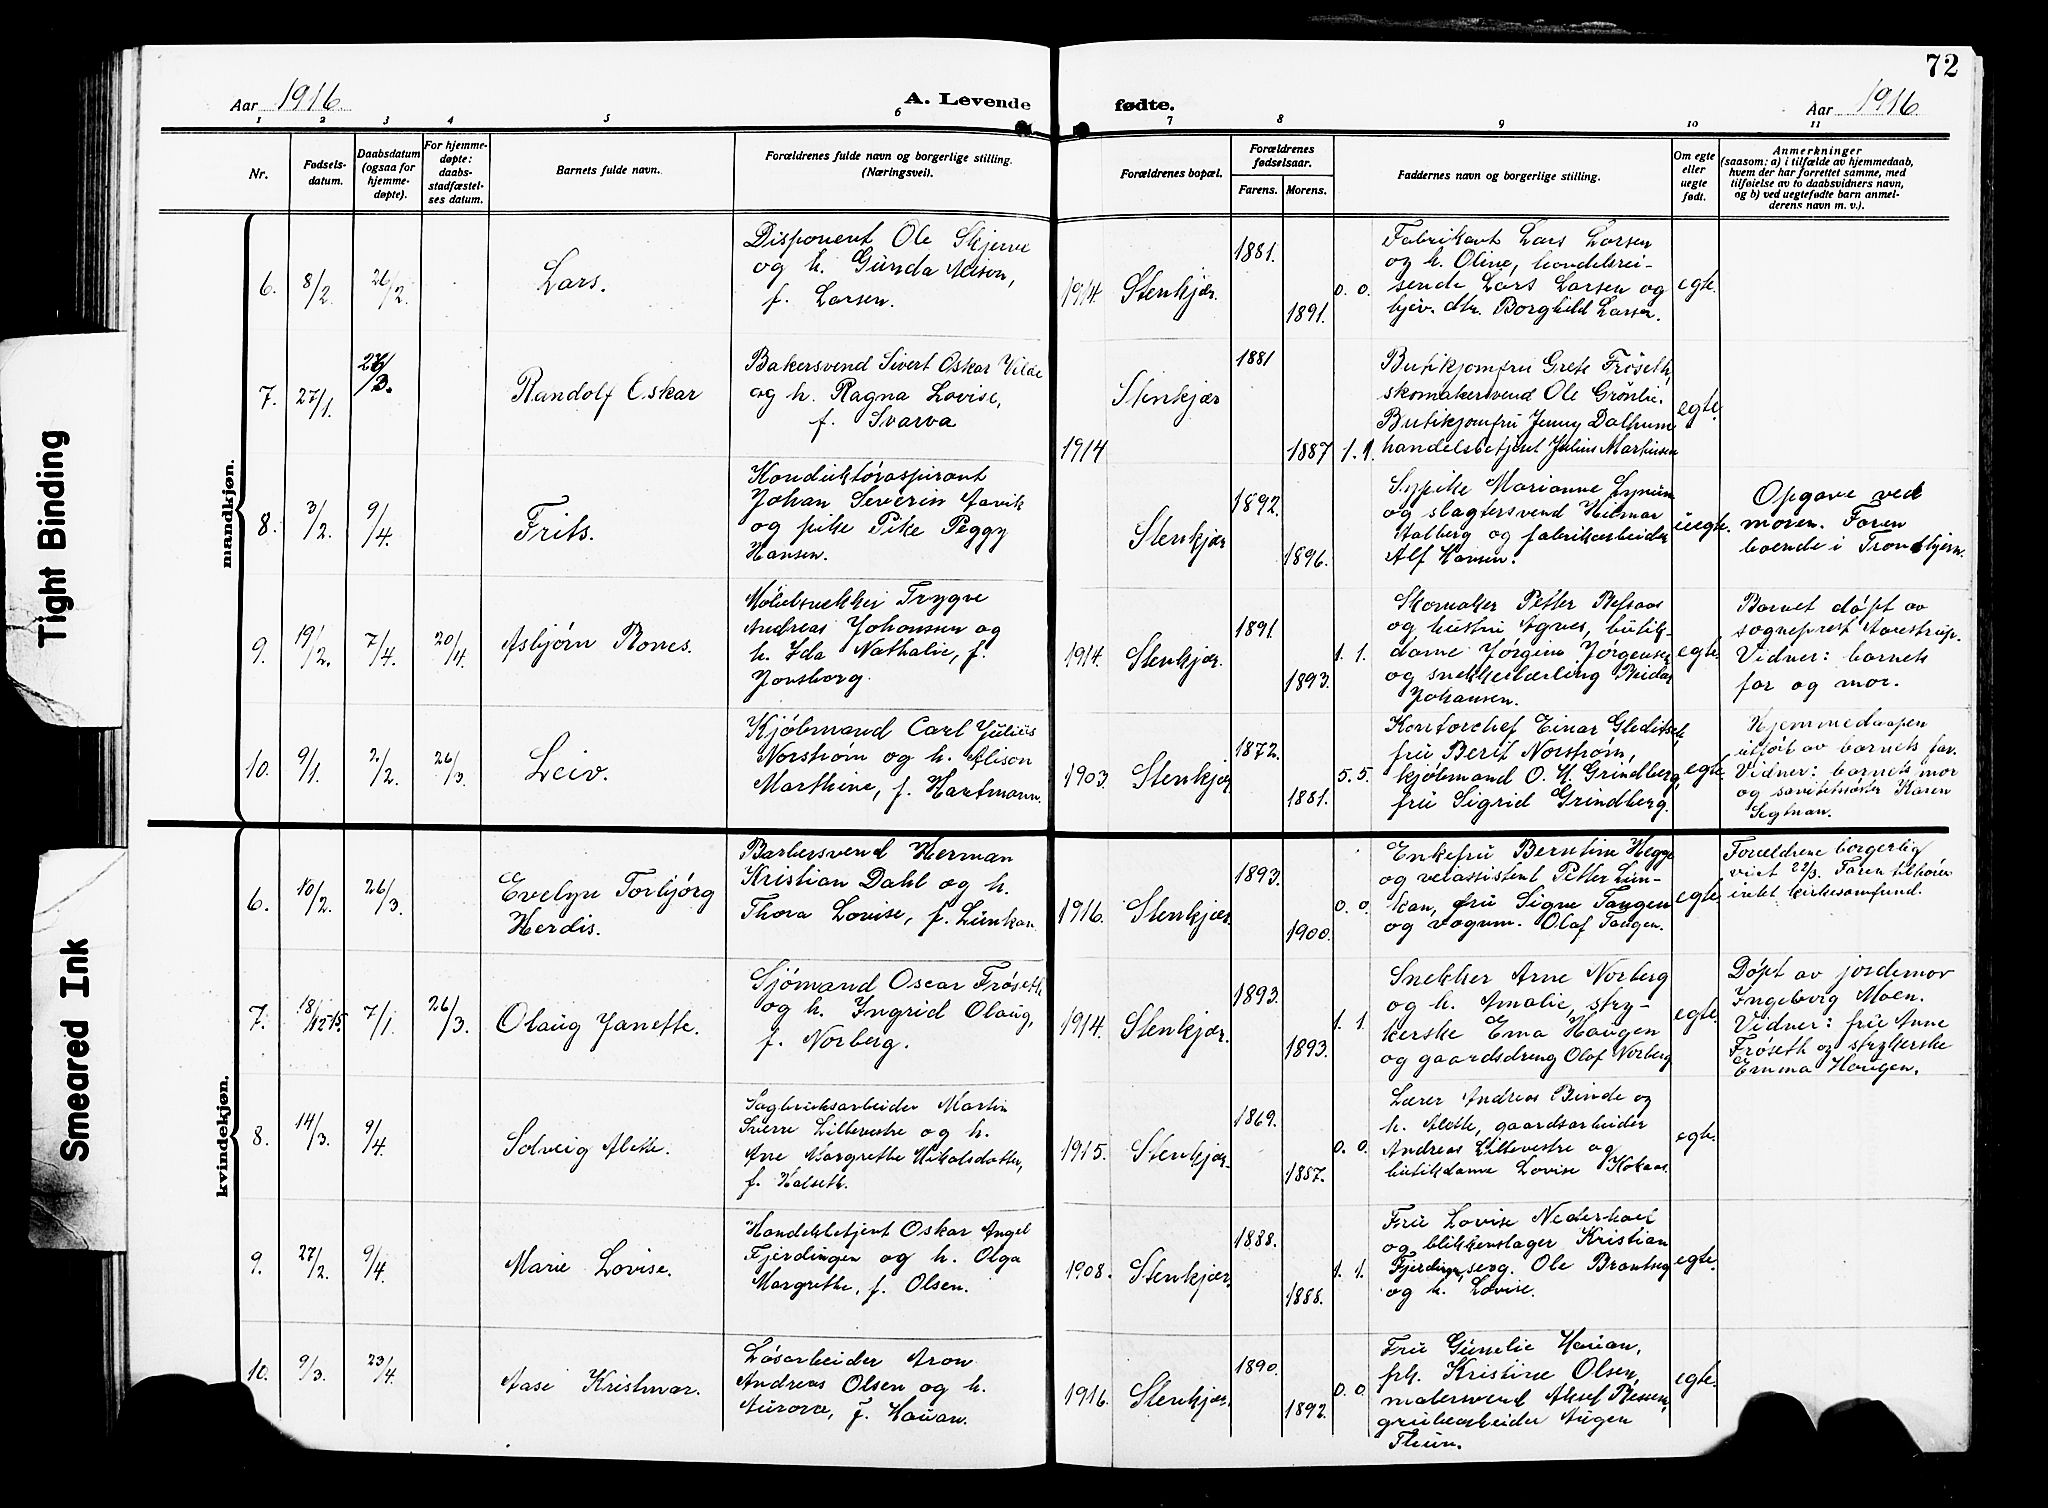 72
Aar 1916.
A. Levende
fødte.
Aar 1916
1 2 3 4 5 6 7 8 9 10 11
Nr.
Fødsels-
datum.
Daabsdatum
(ogsaa for
hjemme-
døpte).
For hjemme-
døpte:
daabs-
stadfæstel-
ses datum.
Barnets fulde navn.
Forældrenes fulde navn og borgerlige stilling.
(Næringsvei).
Forældrenes bopæl.
Forældrenes
fødselsaar.
Farens. Morens.
Faddernes navn og borgerlige stilling.
Om egte
eller
uegte
født.
Anmerkninger
(saasom: a) i tilfælde av hjemmedaab,
hvem der har forrettet samme, med
tilføielse av to daabsvidners navn,
og b) ved uegtefødte barn anmel-
derens navn m. v.).
mandkjøn.
6. 8/2. 26/2.
Lars.
Disponent Ole Skjerve
og h. Gunda
f. Larsen.
1914. Stenkjær.
1881.
1891.
0. 0.
Fabrikant Lars Larsen
og h. Oline, handelsrei-
sende Lars Larsen og
hjev. dtr. Borghild Larsen.
egte.
7. 27/1. 26/3.
Randolf Oskar
Bakersvend Sivert Oskar
og h. Ragna Lovise,
f. Svarva
1914
Stenkjær
1881
1887
1. 1.
Butikjomfru Grete Frøseth,
skomakersvend Ole Grønlie.
Butikjomfru Jenny Dalhum
handelsbetjent Julius Martinsen
egte.
8. 3/2. 9/4.
Frits.
Konduktøraspirant
Johan Severin Aavik
og pike Pike Peggy
Hansen.
Stenkjær
1892.
1896.
Sypike Marianne
og slagtersvend Hilmar
Stalberg og fabrikarbeider
Alf Hansen.
uegte.
Opgave ved
moren. Faren
boende i Trondhjem.
9. 19/2. 7/4. 20/4.
Asbjørn Rones.
Møbelsnekker Trygve
Andreas Johanssen og
h. Ida Nathalie, f.
Jonsborg.
1914. Stenkjær.
1891.
1893.
1. 1.
Skomaker Petter Refsaas
og hustru Agnes, butik-
dame Jørgine Jørgensen
og snekkerlærling Reidar
Johansen.
egte.
Barnet døpt av
sogneprest Aarestrup.
Vidner: barnets
far og mor.
10. 9/1. 2/2. 26/3.
Leiv.
Kjøbmand Carl Julius
Norstrøm og h. Alison
Marthine, f. Hartmann.
1903. Stenkjær.
1872.
1881.
5. 5.
Kontorchef Einar Gleditsch,
fru Berit Norstrøm,
kjøbmand O. H. Grindberg,
fru Sigrid Grindberg.
egte.
Hjemmedaapen
utført av barnets far.
Vidner: barnets mor
og sanitetsøster Karen
Segtnan.
kvindekjøn.
6. 10/2. 26/3.
Evelyn Torbjørg
Herdis.
Barbersvend Herman
Kristian Dahl og h.
Thora Lovise, f. Lunkan.
1916. Stenkjær.
1893.
1900.
0. 0.
Enkefru Berntine Hegge
og veiassistent Petter Lun-
kan, fru Signe Tangen
og vognm. Olaf Tangen.
egte.
Forældrene borgerlig
viet 22/3. Faren tilhører
intet kirkesamfund.
7. 18/12-15. 7/1. 26/3.
Olaug Janette.
Sjømand Oscar Frøseth
og h. Ingrid Olaug,
f. Norberg.
1914. Stenkjær.
1893.
1893.
1. 1.
Snekker Arne Norberg
og h. Amalie, stry-
kerske Ema Haugen
og gaardsdreng Olaf Norberg
egte.
Døpt av jordemor
Ingeborg Moen.
Vidner: fru Anne
Frøseth og strykerske
Emma Haugen.
8. 14/3. 9/4.
Solveig Alette.
Sagbruksarbeider Martin
Sverre Lillevestre og h.
Ane Margrethe Nikolsdatter,
f. Halseth.
1915. Stenkjær.
1869.
1887.
0. 0.
Lærer Andreas Binde og
h. Alette, gaardsarbeider
Andreas Lillevestre og
butikdame Lovise Kolaas
egte.
9. 27/2. 9/4.
Marie Lovise.
Handelsbetjent Oskar Angel
Fjerdingen og h. Olga
Margrethe, f. Olsen.
1908. Stenkjær.
1888.
1888.
1. 1.
Fru Lovise Nederhoel
og blikkenslager Kristian
Fjerdingen, serg. Ole Brantseg
og h. Lovise.
egte.
10. 9/3. 23/4.
Aase Kristmar.
Løsarbeider Aron
Andreas Olsen og h.
Aurora, f. Hauan.
1916. Stenkjær.
1890.
1892.
0. 0.
Fru Gunelie Hauan,
frk. Kristine Olsen,
malersvend Aksel
grubearbeider Augen
Thun.
egte.
Tight Binding
Smeared Ink